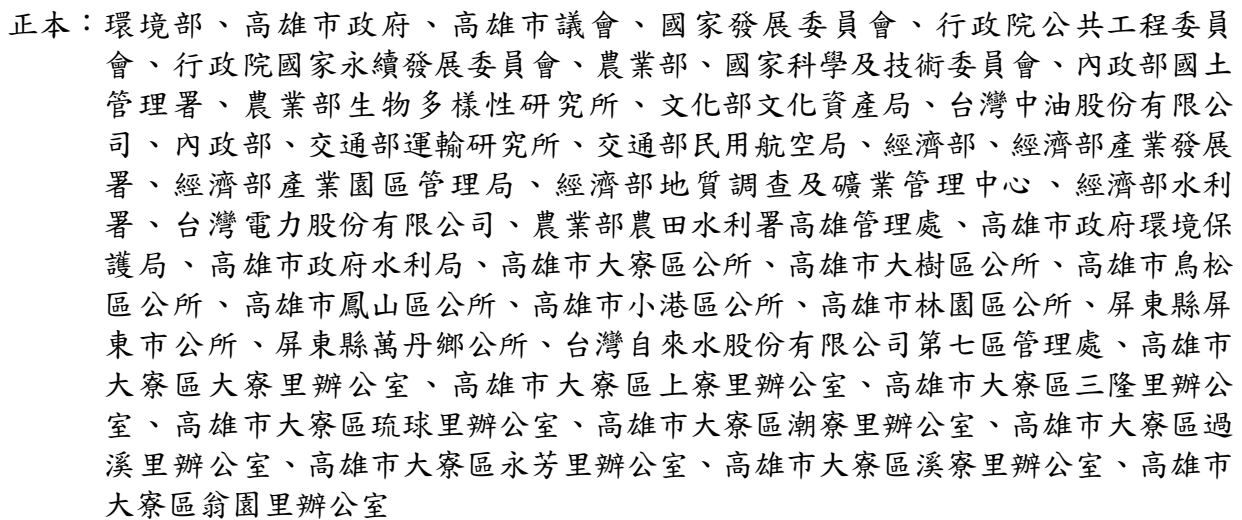 正本：環境部、高雄市政府、高雄市議會、國家發展委員會、行政院公共工程委員
會、行政院國家永續發展委員會、農業部、國家科學及技術委員會、內政部國土
管理署、農業部生物多樣性研究所、文化部文化資產局、台灣中油股份有限公
司、內政部、交通部運輸研究所、交通部民用航空局、經濟部、經濟部產業發展
署、經濟部產業園區管理局、經濟部地質調查及礦業管理中心、經濟部水利
署、台灣電力股份有限公司、農業部農田水利署高雄管理處、高雄市政府環境保
護局、高雄市政府水利局、高雄市大寮區公所、高雄市大樹區公所、高雄市鳥松
區公所、高雄市鳳山區公所、高雄市小港區公所、高雄市林園區公所、屏東縣屏
東市公所、屏東縣萬丹鄉公所、台灣自來水股份有限公司第七區管理處、高雄市
大寮區大寮里辦公室、高雄市大寮區上寮里辦公室、高雄市大寮區三隆里辦公
室、高雄市大寮區琉球里辦公室、高雄市大寮區潮寮里辦公室、高雄市大寮區過
溪里辦公室、高雄市大寮區永芳里辦公室、高雄市大寮區溪寮里辦公室、高雄市
大寮區翁園里辦公室